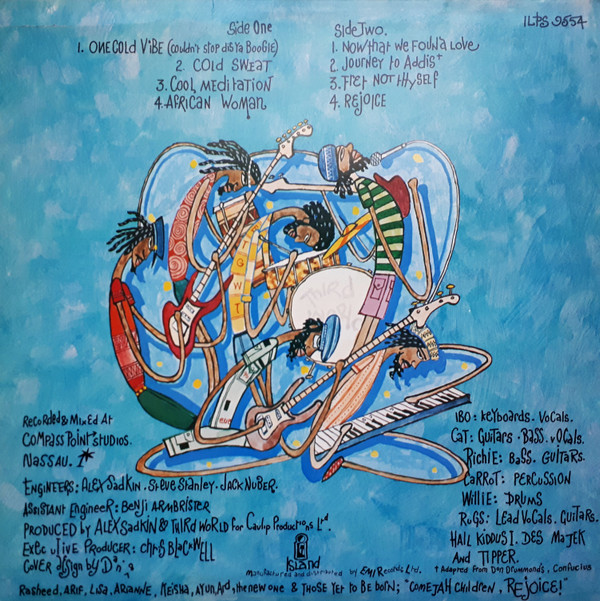 ILPS 9554
Side One
1. ONE COLD VIBE (COULDN'T STOP DIS YA BOOGIE)
2. COLD SWEAT
3. COOL MEDITATION
4. AFRICAN WOMAN
SIDE TWO.
1. NOW THAT WE FOUND LOVE
2. JOURNEY TO ADDIS†
3. FRET NOT THYSELF
4. REJOICE
THIRD
RECORDED & MIXED AT
COMPASS POINT STUDIOS.
NASSAU.
ENGINEERS: ALEX SADKIN. STEVE STANLEY. JACK NUBER.
ASSISTANT ENGINEER: BENJI ARMBRISTER
PRODUCED BY ALEX SADKIN & THIRD WORLD FOR Cavlip Productions Ltd.
EXECUTIVE PRODUCER: CHRIS BLACKWELL
COVER design by
IBO: KEYBOARDS. VOCALS.
CAT: GUITARS. BASS. VOCALS.
RICHIE: BASS. GUITARS.
CARROT: PERCUSSION
WILLIE: DRUMS
RUGS: LEAD VOCALS. GUITARS.
HAIL KIDDUS I. DES MAJEK
AND TIPPER.
† Adapted from Don Drummond's, Confucius
Island
Manufactured and distributed by EMI Records Ltd.
Rasheed, ARIF, LISA, ARIANNE, KEISHA, AYUN, Ard, the new one & THOSE YET TO BE BORN; "COME JAH CHILDREN, REJOICE!"